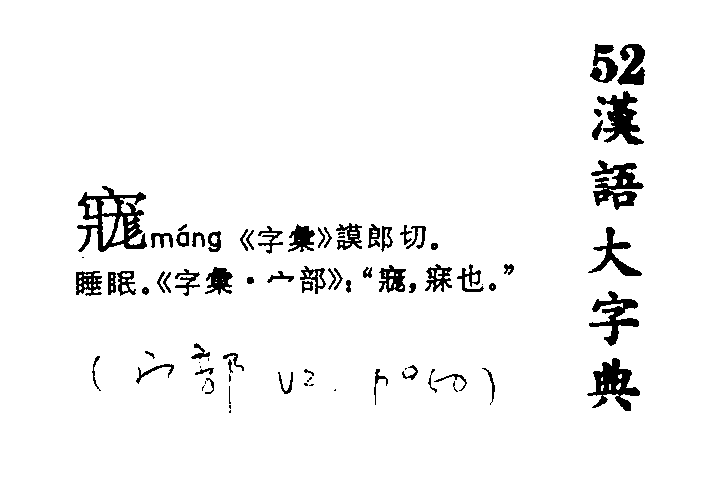 máng《字彙》謨郎切。
睡眠。《字彙·宀部》：“，寐也。”
(宀部 V2.
52漢語大字典